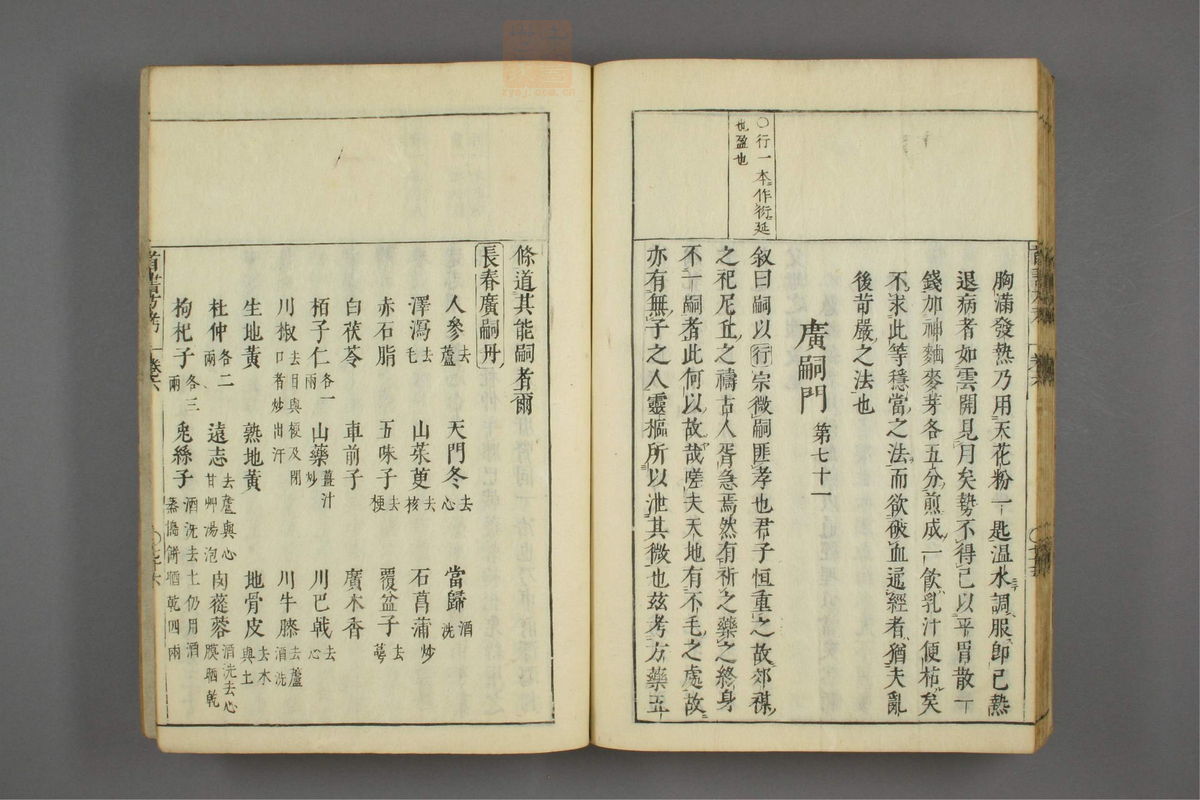 〇行一本作衍延
也盈也
胸滿發熱乃用天花粉一匙温水調服即已熱
退病者如雲開見月矣勢不得已以平胃散一
錢加神麯麥芽各五分煎成一飲乳汁便枯矣
不求此等穩當之法而欲破血逼經者猶夫亂
後苛嚴之法也
廣嗣門 第七十一
叙曰嗣以行宗微嗣匪孝也君子恒重之故郊禖
之祀尼丘之禱古人胥急焉然有祈之藥之終身
不一嗣者此何以故哉嗟夫天地有不毛之處故
亦有無子之人靈樞所以泄其微也茲考方藥五
條道其能嗣者爾
長春廣嗣丹
人參去蘆 天門冬去心 當歸酒洗
澤瀉去毛 山茱萸去核 石菖蒲炒
赤石脂 五味子去梗 覆盆子去萼
白茯苓 車前子 廣木香
栢子仁各一兩 山藥薑汁炒 川巴戟去心
川椒去目與梗及閉口者炒出汗 川牛膝去蘆酒洗
生地黃 熟地黃 地骨皮去木與土
杜仲各二兩 遠志去蘆與心甘艸湯泡 肉蓯蓉酒洗去心膜晒乾
枸杞子各三兩 兎絲子酒洗去土仍用酒蒸搗餅晒乾四兩
卷六